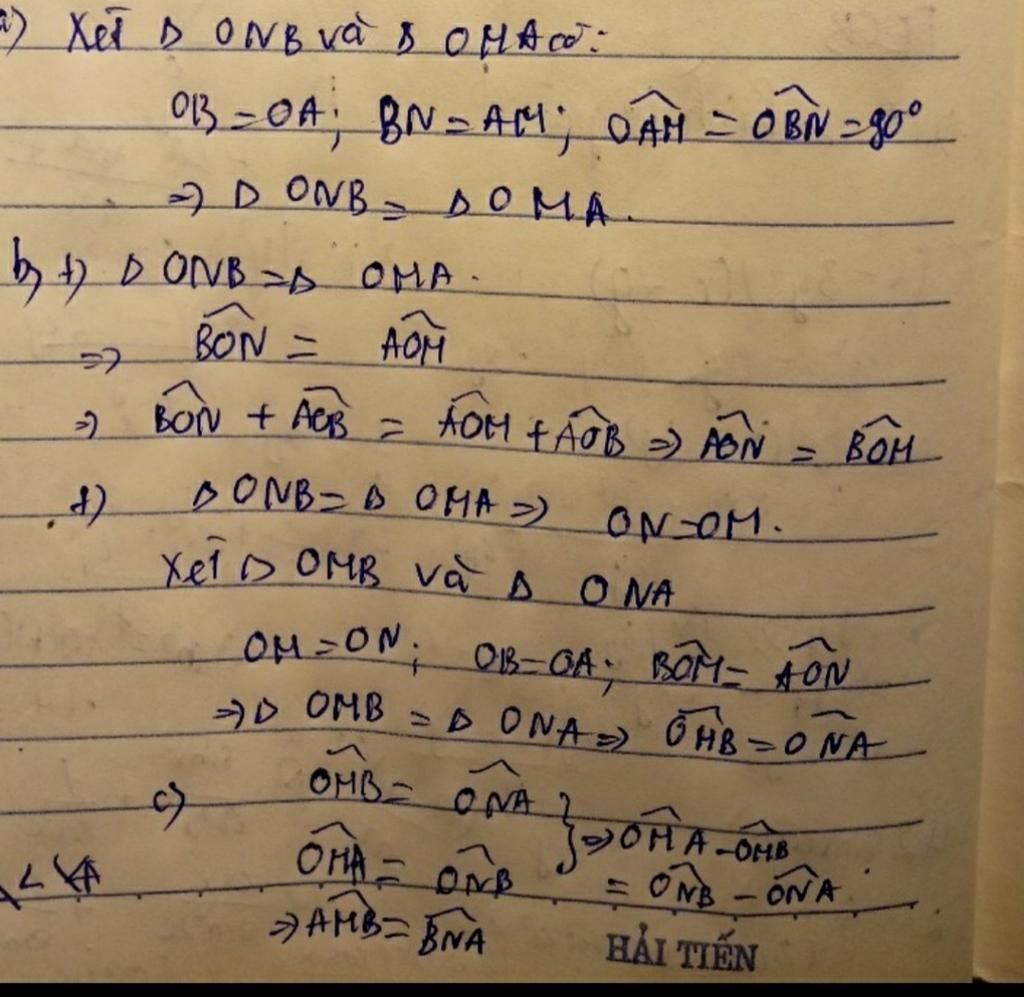 a) Xét Δ ONB và Δ OMA có:
OB = OA; BN = AM; OAM = OBN = 90°
=> Δ ONB = Δ OMA.
b) +) Δ ONB = Δ OMA.
=> BON = AOM
=> BON + AOB = AOM + AOB => AON = BOM
+) Δ ONB = Δ OMA => ON = OM.
Xét Δ OMB và Δ ONA
OM = ON; OB = OA; BOM = AON
=> Δ OMB = Δ ONA => OMB = ONA
c) OMB = ONA } => OMA - OMB
OMA = ONB = ONB - ONA.
=> AMB = BNA
HẢI TIẾN